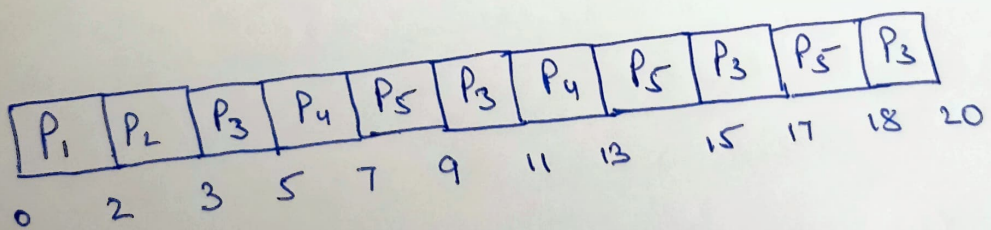 P₁ P₂ P₃ P₄ P₅ P₃ P₄ P₅ P₃ P₅ P₃
0 2 3 5 7 9 11 13 15 17 18 20